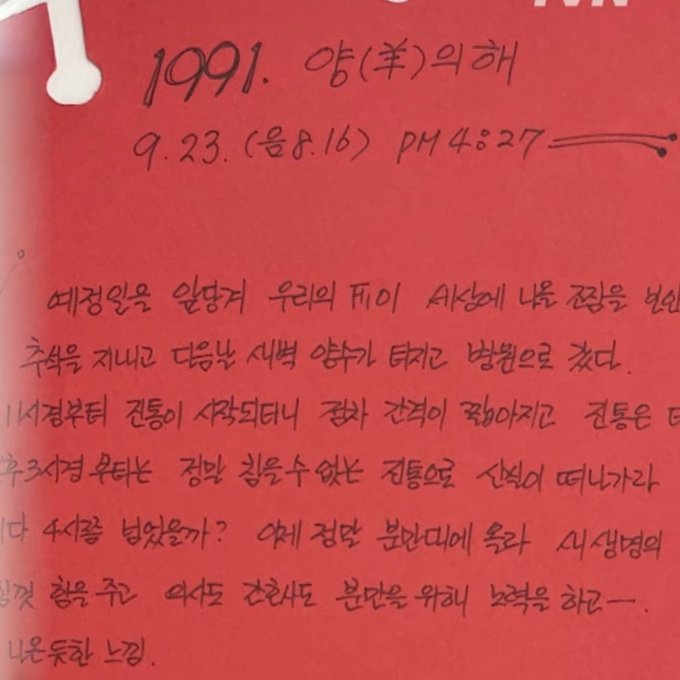 tvN
1991. 양(羊)의해
9.23. (음8.16) PM 4:27
예정일을 앞당겨 우리의 이 세상에 나올 조짐을 보인
추석을 지내고 다음날 새벽 양수가 터지고 병원으로 갔다.
1시경부터 진통이 시작되더니 점차 간격이 짧아지고 진통은
후3시경 부터는 정말 참을수 없는 진통으로 신씰이 떠나가라
다 4시쯤 넘었을까? 이제 정말 분만대에 올라 새생명의
힘껏 힘을 주고 의사도 간호사도 분만을 위해 노력을 하고—.
나온듯한 느낌.